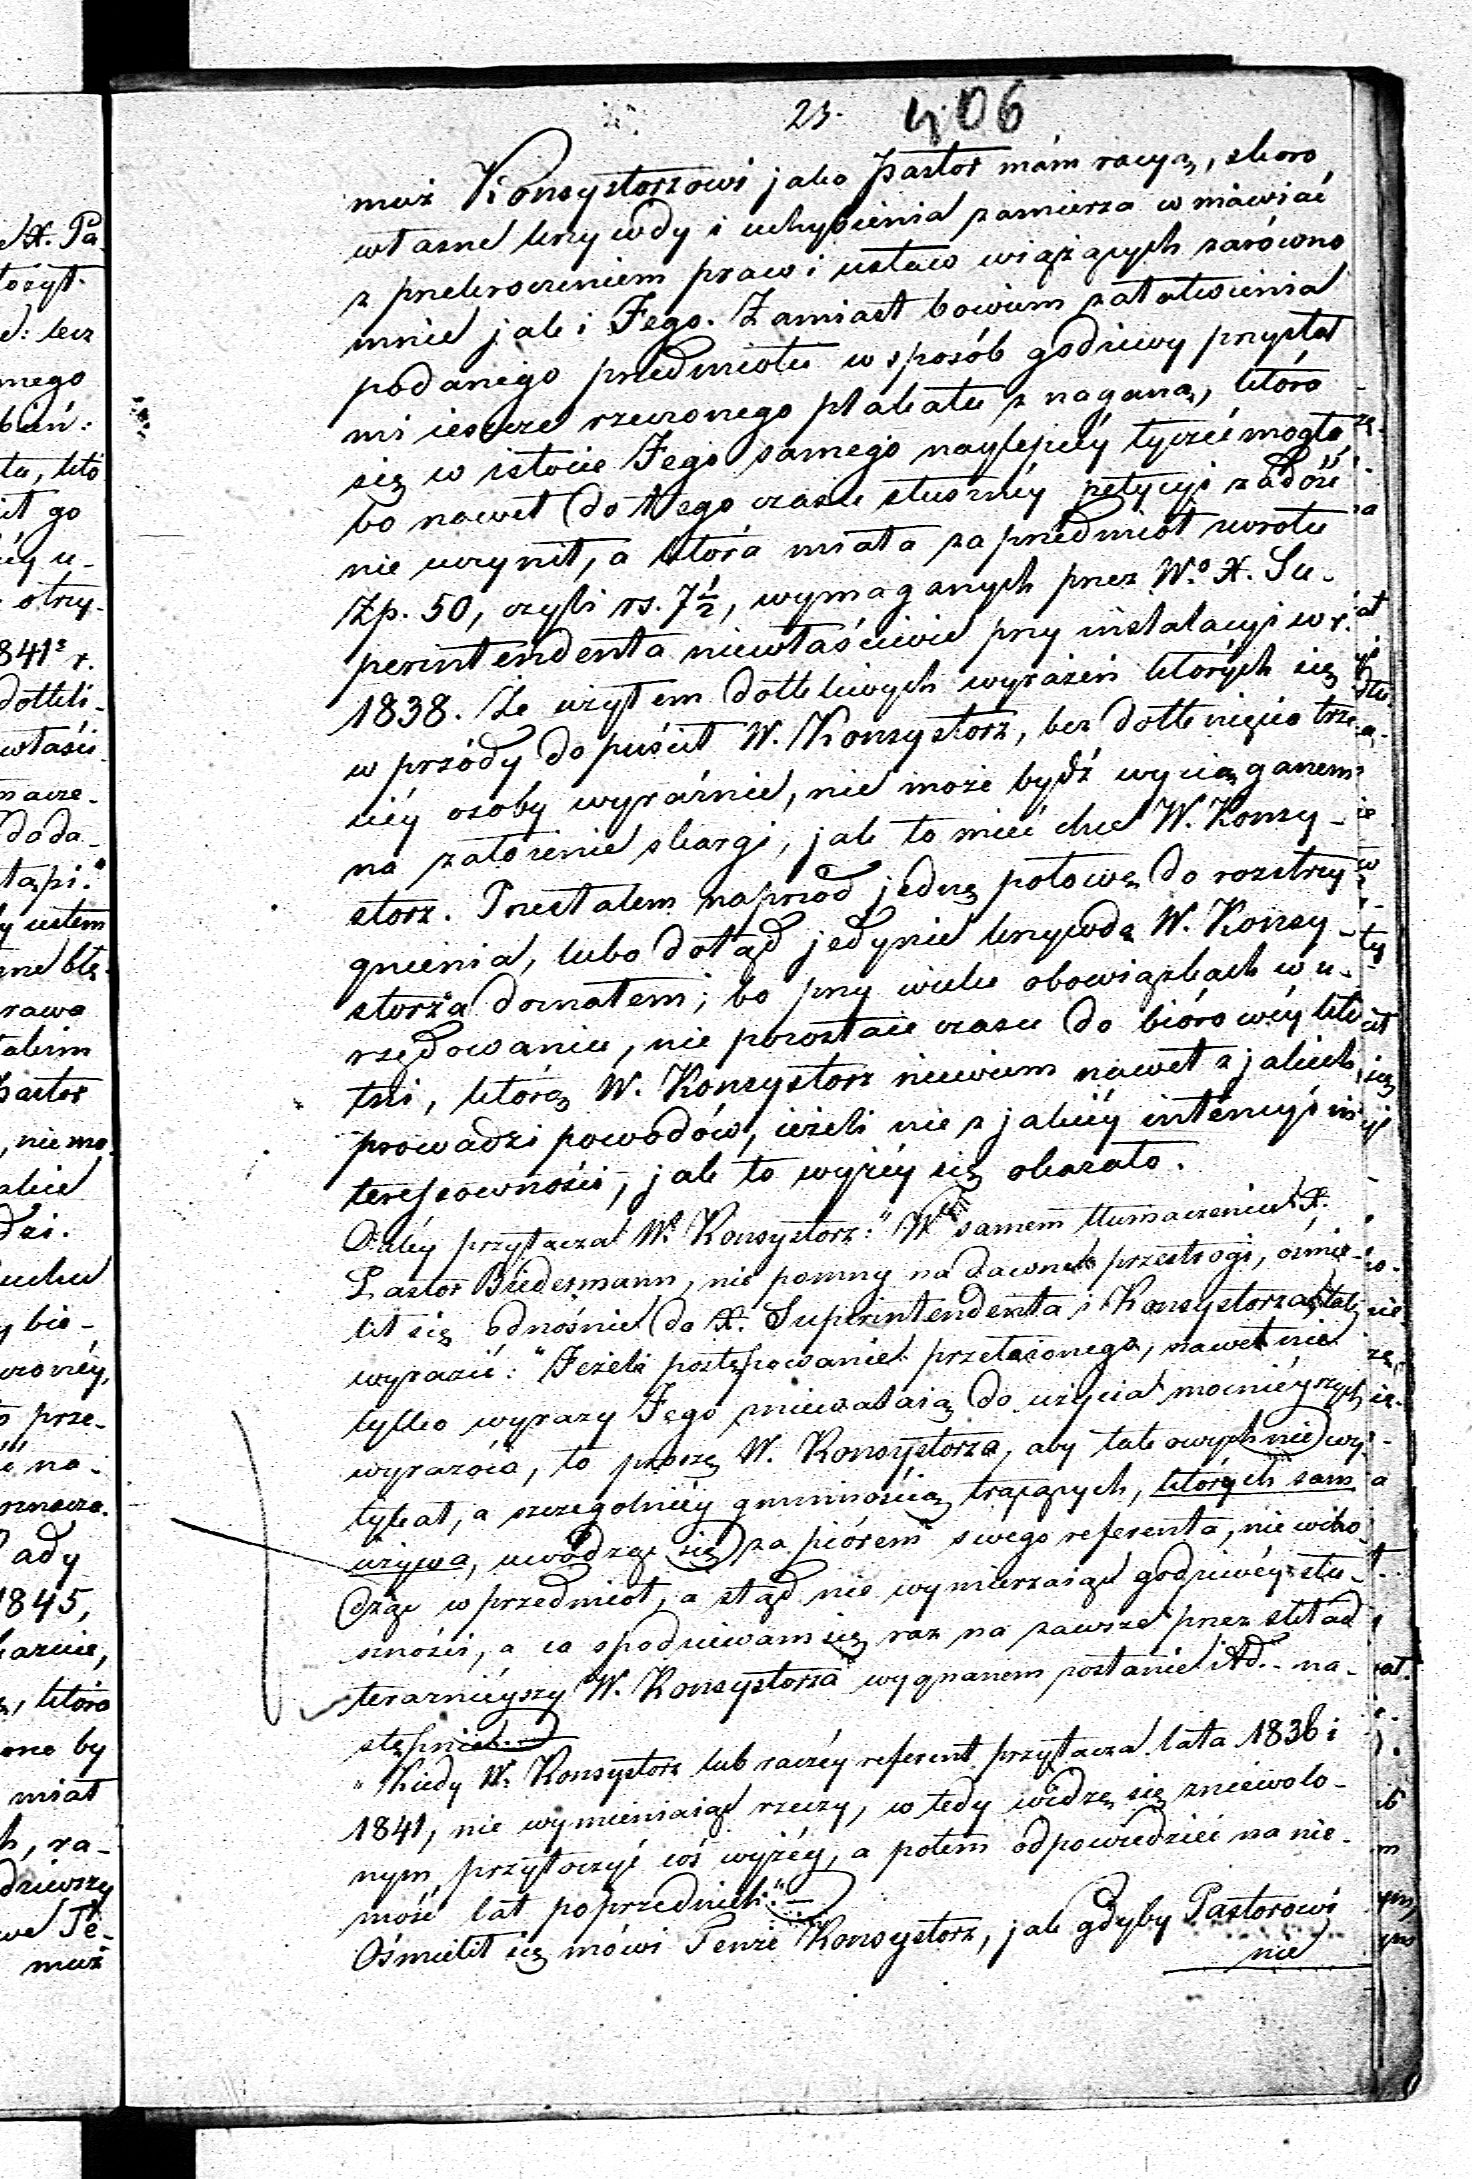 23. 406
muż Konsystorzowi jako Pastor mám racyą, skoro
własne krzywdy i uchybienia zamierza wmáwiać
z przekroczeniem praw i ustaw wiążących zarówno
mnie jak i Jego. Zamiast bowiem załatwienia
podanego przedmiotu w sposób godziwy przysłał
mi ieszcze rzeczonego plakatu z naganą, która
się w istocie Jego samego naylepiéy tyczéć mogła,
bo nawet do tego czasu słusznéy petycyi zadość
nie uczynił, a która miała za przedmiot zwrotu
Zp. 50, czyli rs. 7½, wymaganych przez W.º X. Su-
perintendenta niewłaściwie przy instalacyi w r.
1838. Że użyłem dotkliwych wyrażeń których się
w przódy dopuścił W. Konsystorz, bez dotknięcia trze-
ciéy osoby wyraźnie, nie może bydź wyciąganem
na założenie skargi, jak to mieć chce W. Konsy-
storz. Przestałem napród jedną połowę do rozstrzy
gnienia, lubo dotąd jedynie krzywdę W. Konsy-
storza doznałem; bo przy wielu obowiązkach w u-
rzędowaniu, nie pozostaie czasu do biórowéy kłó
tni, którą W. Konsystorz niewiem nawet z jakich
prowadzi powodów, ieżeli nie z jakiéy intencyi in
teressowności, jak to wyżéy się okazało.
Daléy przytacza W. Konsystorz: "W samem tłumaczeniu X.
Pastor Biedermann, nie pomny na dawne przestrogi, ośmie-
lił się odnośnie do X. Superintendenta i Konsystorza tak
wyrazić: "Jeżeli postępowanie przełożonego, nawet nie
tylko wyrazy Jego zniewalaią do użycia mocniéyszych
wyrazów, to proszę W. Konsystorza, aby takowych nie wy-
tykał, a szczegolniéy gminnością trącących, których sam
używa, uwodząc się za piórem swego referenta, nie wcho
dząc w przedmiot, a stąd nie wymierzaiąc godziwéy słu-
szności, a co spodziewam się raz na zawsze przez skład
terazniéyszy W. Konsystorza wygnanem zostanie itd. - na-
stępnie
"Kiedy W. Konsystorz lub raczéy referent przytacza lata 1836 i
1841, nie wymieniaiąc rzeczy, wtedy widzę się zniewolo-
nym, przytoczyć coś wyżéy, a potem odpowiedzieć na nie-
mość lat poprzednich." -
Ośmielił się mówi Tenże Konsystorz, jak gdyby Pastorowi
nie